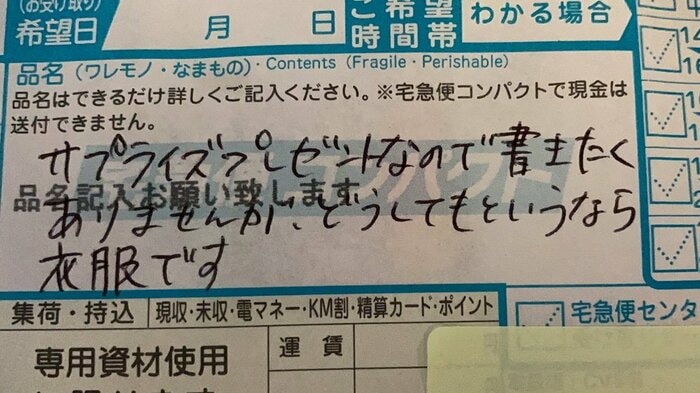 (お受け取り)
希望日
月 日
ご希望
時間帯
わかる場合
品名(ワレモノ・なまもの)・Contents (Fragile・Perishable)
品名はできるだけ詳しくご記入ください。※宅急便コンパクトで現金は
送付できません。
サプライズプレゼントなので書きたく
品名記入お願い致します
ありませんが、どうしてもというなら
衣服です
集荷・持込
現収・未収・電マネー・KM割・精算カード・ポイント
宅急便センタ
専用資材使用
運賃